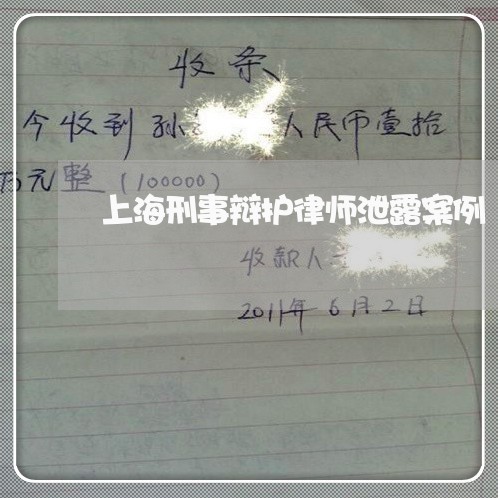 收条
今收到孙 人民币壹拾
万元整(100000)
上海刑事辩护律师泄露案例
收款人
2011年6月2日